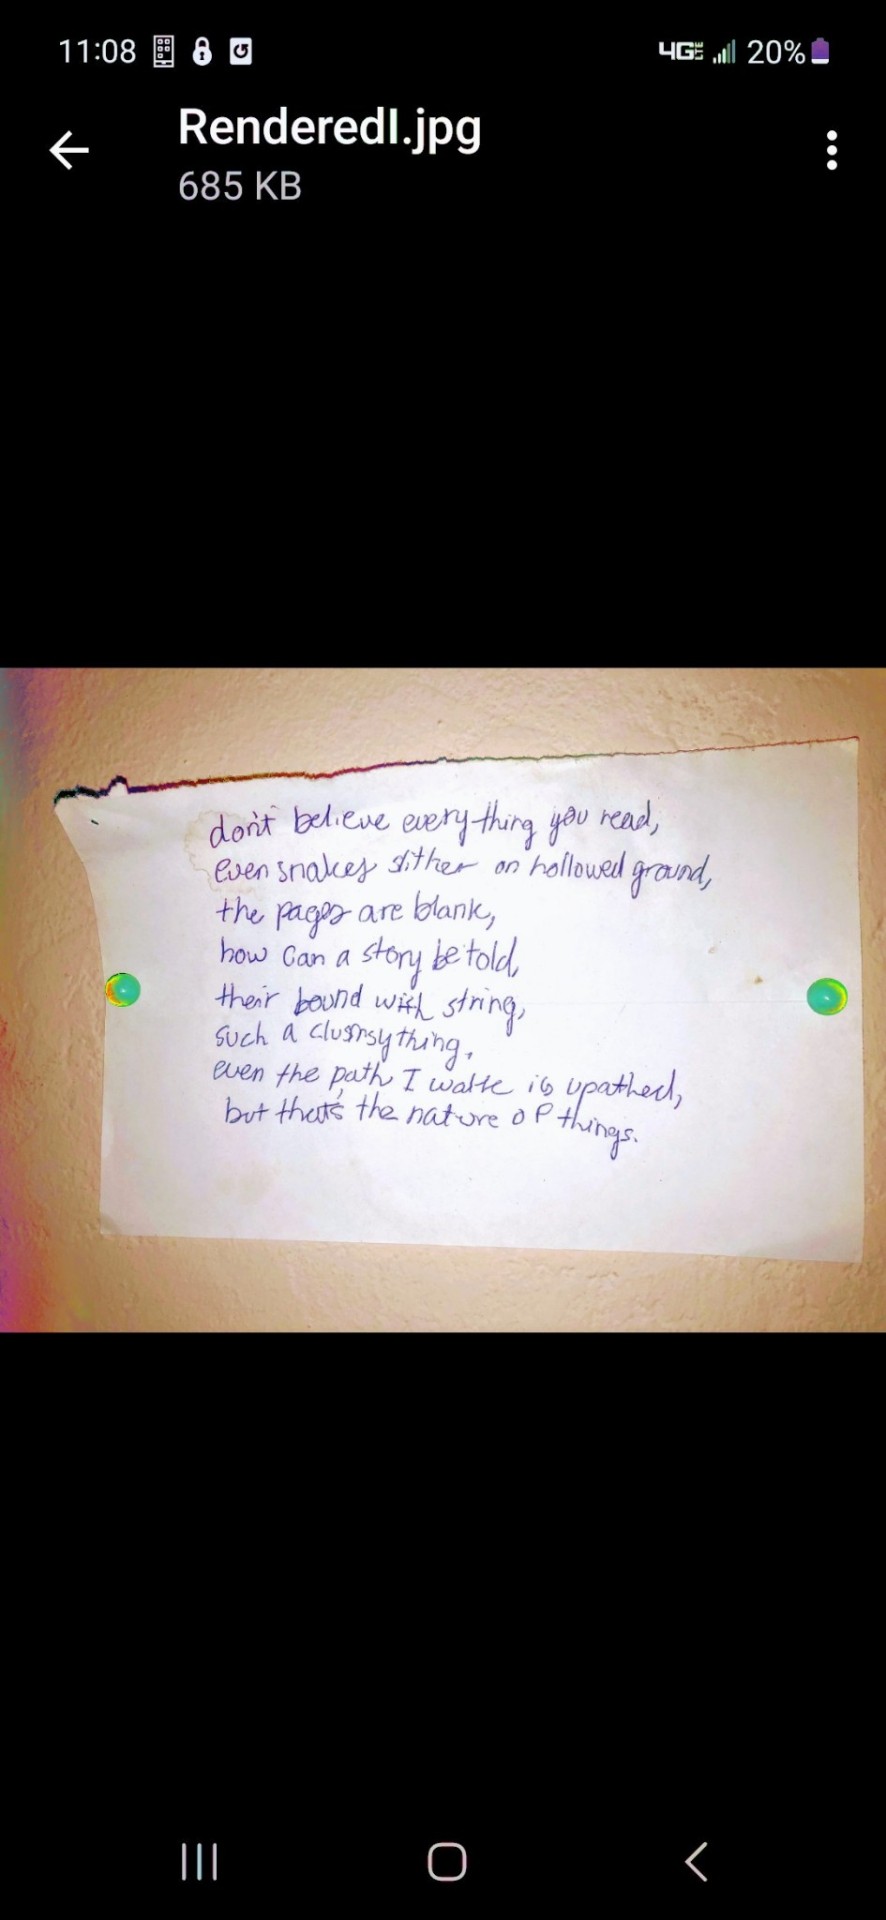 11:08
4G LTE 20%
RenderedI.jpg
685 KB
don't believe everything you read,
even snakes slither on hollowed ground,
the pages are blank,
how can a story be told,
their bound with string,
such a clumsy thing,
even the path I walk is upathed,
but that's the nature of things.